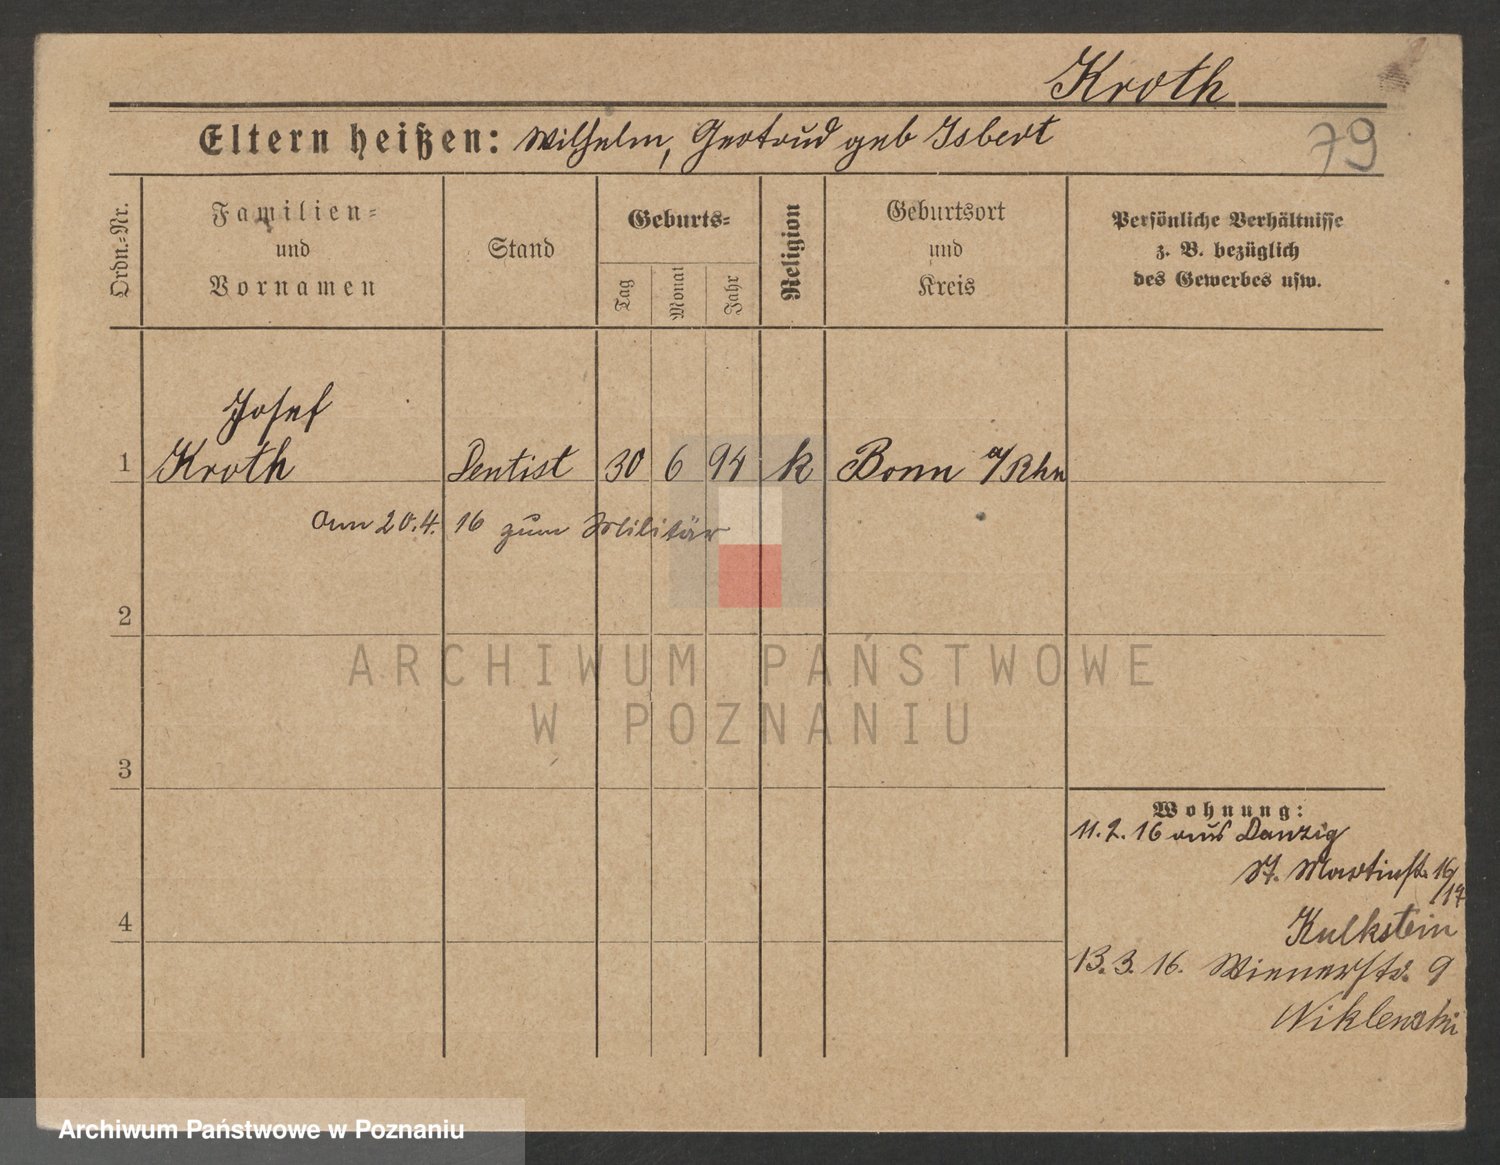 Kroth
Eltern heißen: Wilhelm, Gertrud geb Isbert
79
Ordn.-Nr.
Familien-
und
Vornamen
Stand
Geburts-
Tag
Monat
Jahr
Religion
Geburtsort
und
Kreis
Persönliche Verhältnisse
z. B. bezüglich
des Gewerbes usw.
Josef
1 Kroth Dentist 30 6 94 k Bonn a/Rhn
am 20.4.16 zum Militär
2
3
4
Wohnung:
11.2.16 aus Danzig
St. Martinstr. 16/17
Kulkstein
13.3.16. Wienerstr. 9
Niklenski
ARCHIWUM PAŃSTWOWE
W POZNANIU
Archiwum Państwowe w Poznaniu